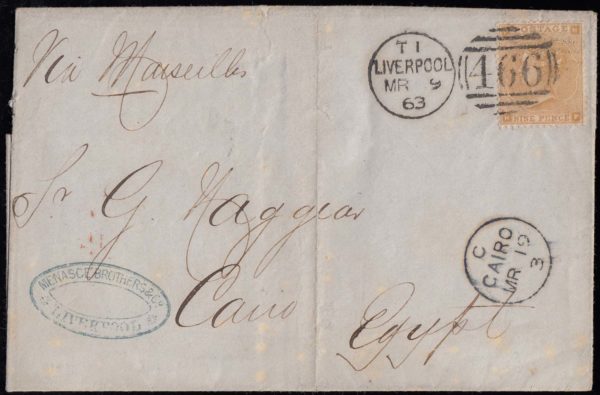 Via Marseilles
T I
LIVERPOOL
MR 9
63
466
POSTAGE
NINE PENCE
Sr. G. Naggear
Cairo
Egypt
MENASCE BROTHERS & Co
LIVERPOOL
C
CAIRO
MR 19
3